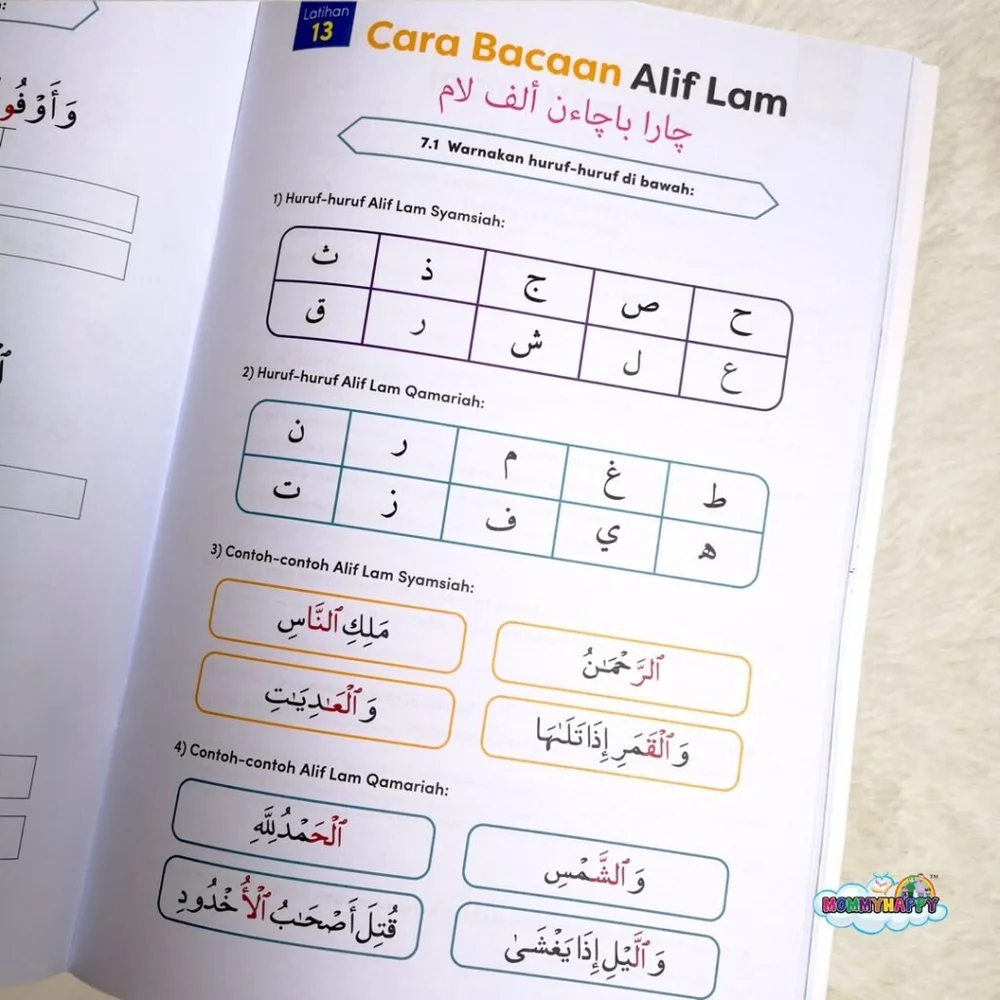 Latihan
13
Cara Bacaan Alif Lam
چارا باچاءن ألف لام
7.1 Warnakan huruf-huruf di bawah:
1) Huruf-huruf Alif Lam Syamsiah:
ث ذ ج ص ح
ق ر ش ل ع
2) Huruf-huruf Alif Lam Qamariah:
ن ر م غ ط
ت ز ف ي ه
3) Contoh-contoh Alif Lam Syamsiah:
مَلِكِ ٱلنَّاسِ
ٱلرَّحْمَـٰنُ
وَٱلْعَـٰدِيَـٰتِ
وَٱلْقَمَرِ إِذَا تَلَىٰهَا
4) Contoh-contoh Alif Lam Qamariah:
ٱلْحَمْدُ لِلَّهِ
وَٱلشَّمْسِ
قُتِلَ أَصْحَـٰبُ ٱلْأُخْدُودِ
وَٱلَّيْلِ إِذَا يَغْشَىٰ
MOMMYHAPPY
TM